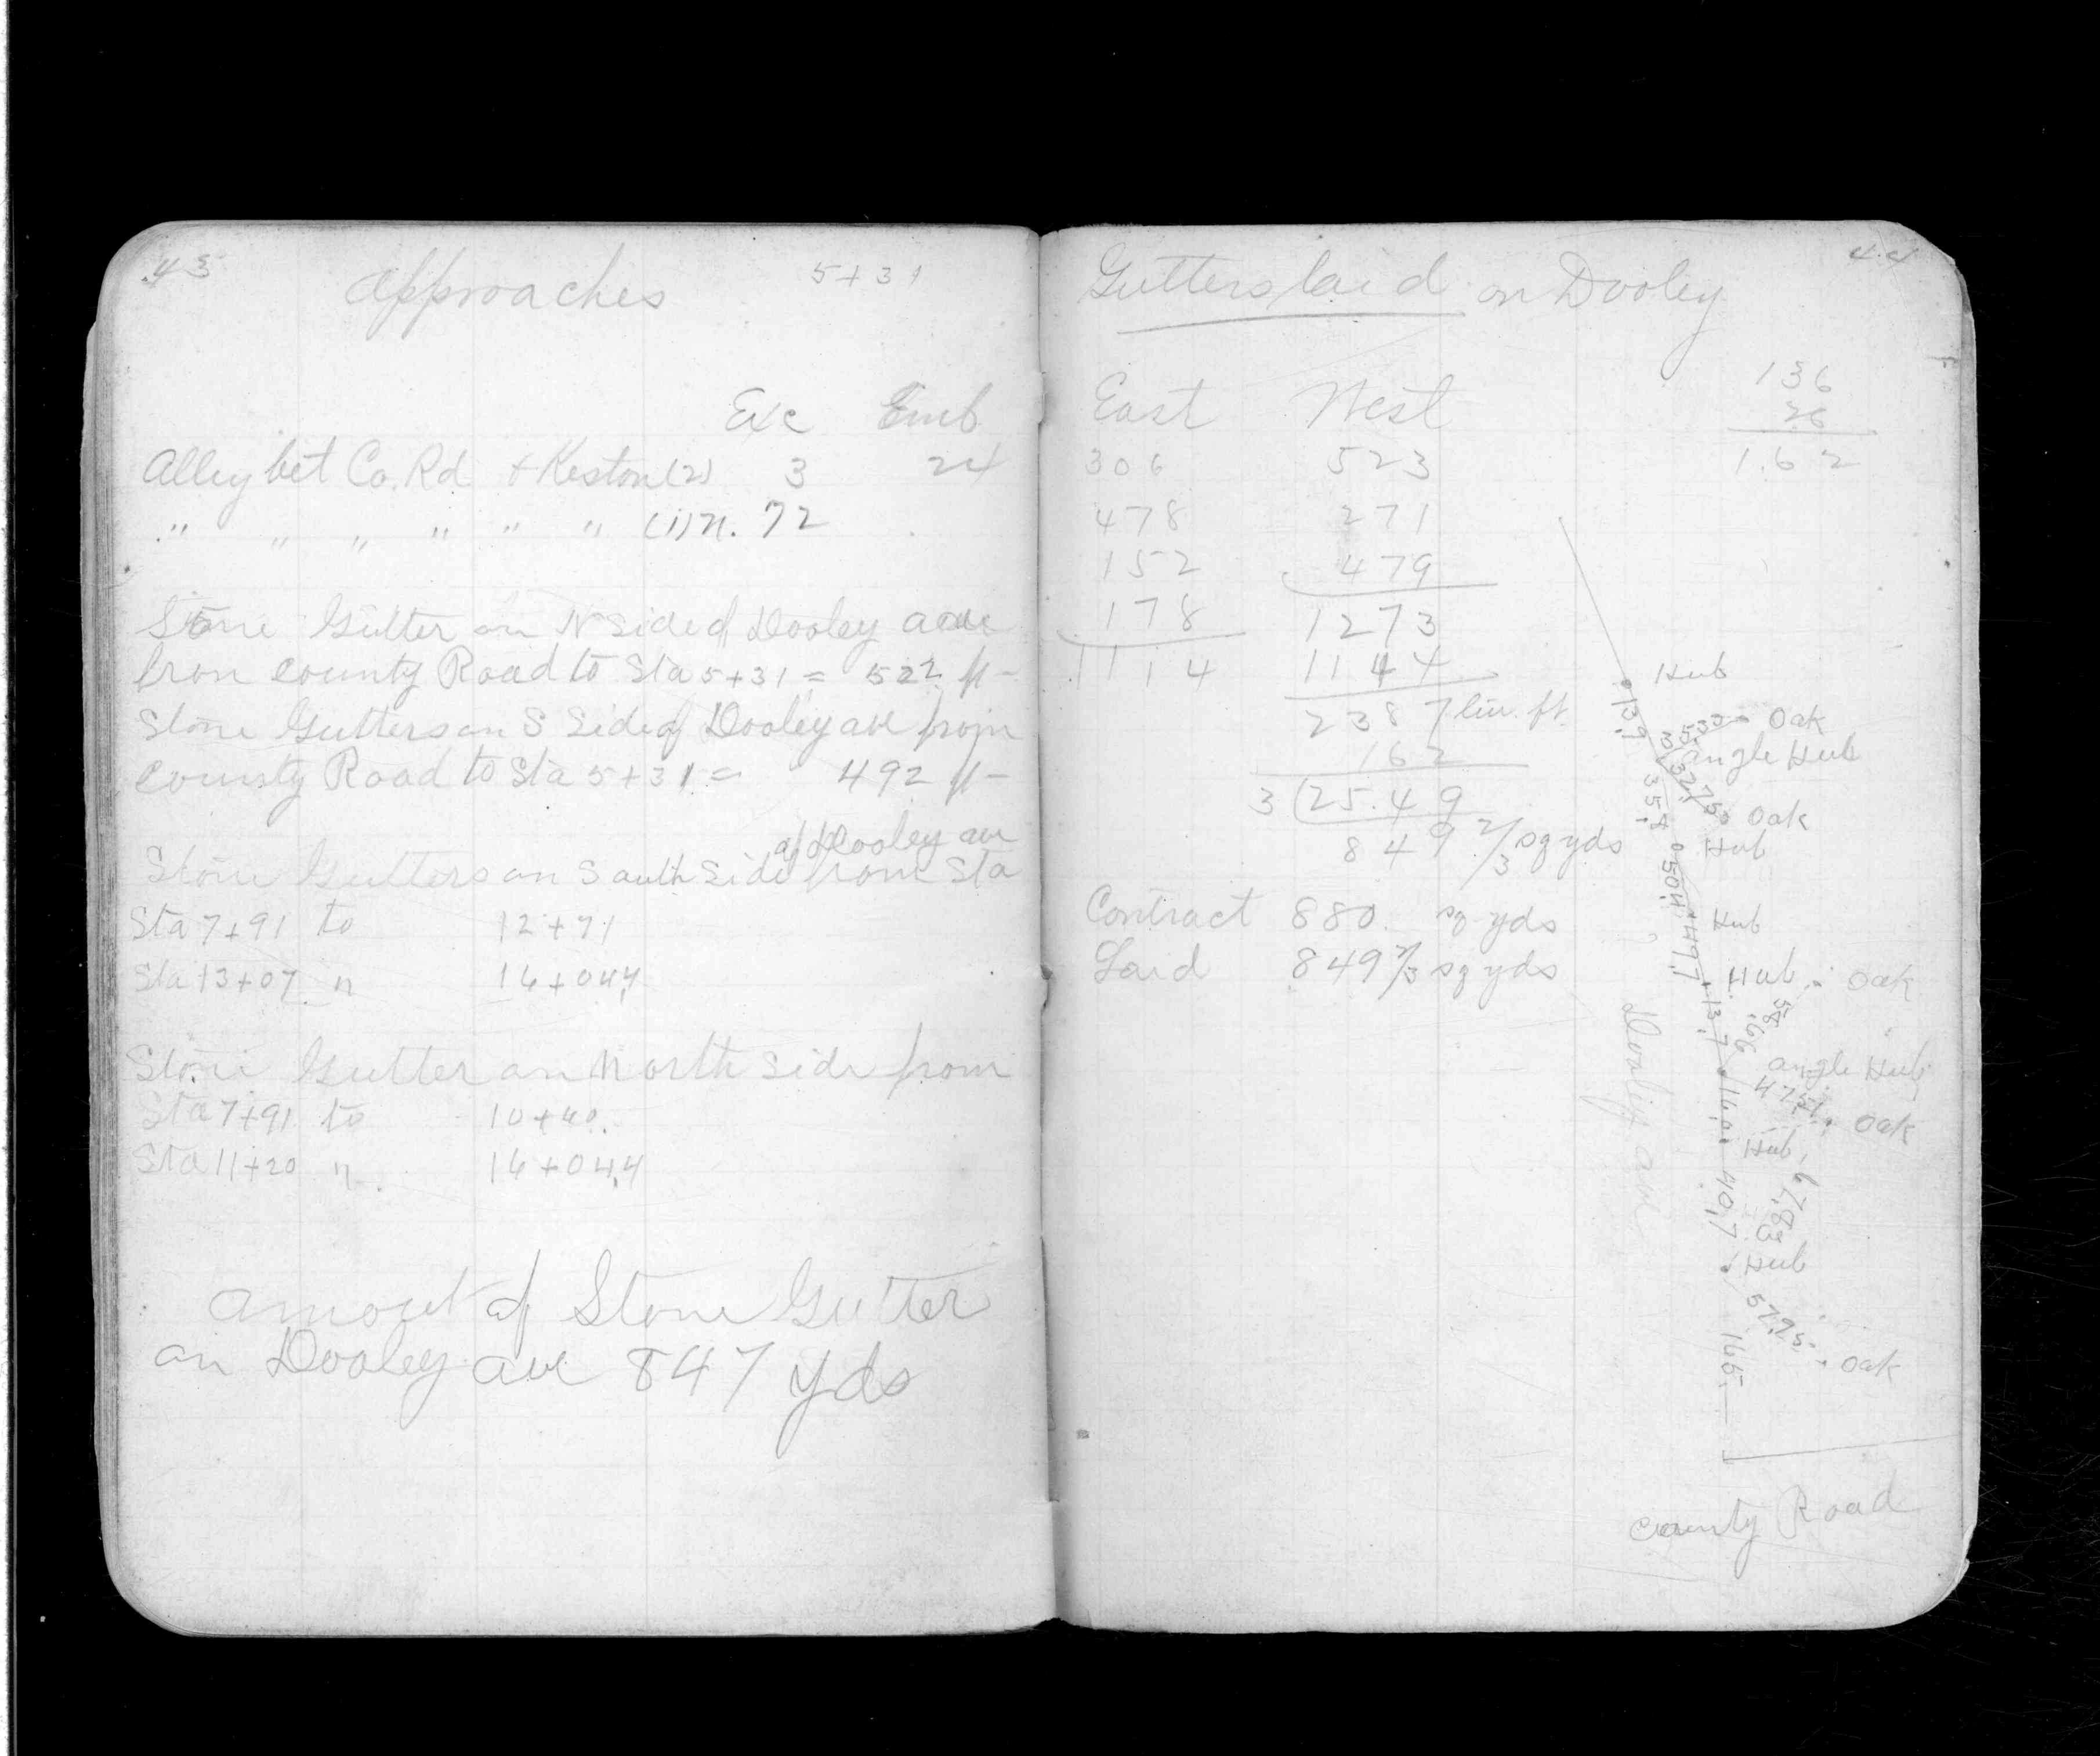 43
Approaches 5+31
Exc Emb
Alley bet Co. Rd + Keston (2) 3 24
" " " " " " (1) n. 72
Stone Gutter on N side of Dooley ave
from County Road to Sta 5+31 = 522 ft -
Stone Gutters on S Side of Dooley ave from
County Road to Sta 5+31 = 492 ft -
of Dooley ave
Stone Gutters on South Side from Sta
Sta 7+91 to 12+71
Sta 13+07 " 16+04.4
Stone Gutter on North Side from
Sta 7+91 to 10+40.
Sta 11+20 " 16+04.4
Amout of Stone Gutter
on Dooley ave 847 yds
44
Gutters laid on Dooley
136
26
1.62
East West
306 523
478 271
152 479
178 1273
1114 1144
2387 lin. ft.
162
3 (25.49
849 2/3 sq yds
Contract 880. sq yds
Laid 849 2/3 sq yds
Hub
13.9
Oak
Angle Hub
32.75
35.4
Oak
Hub
50.4
Hub
49.7
Hub
Oak
58
13.7
66
Angle Hub
47.51
16.0
Oak
Hub
67.8
40.7
Hub
57.95
Oak
165
Dooley ave
County Road